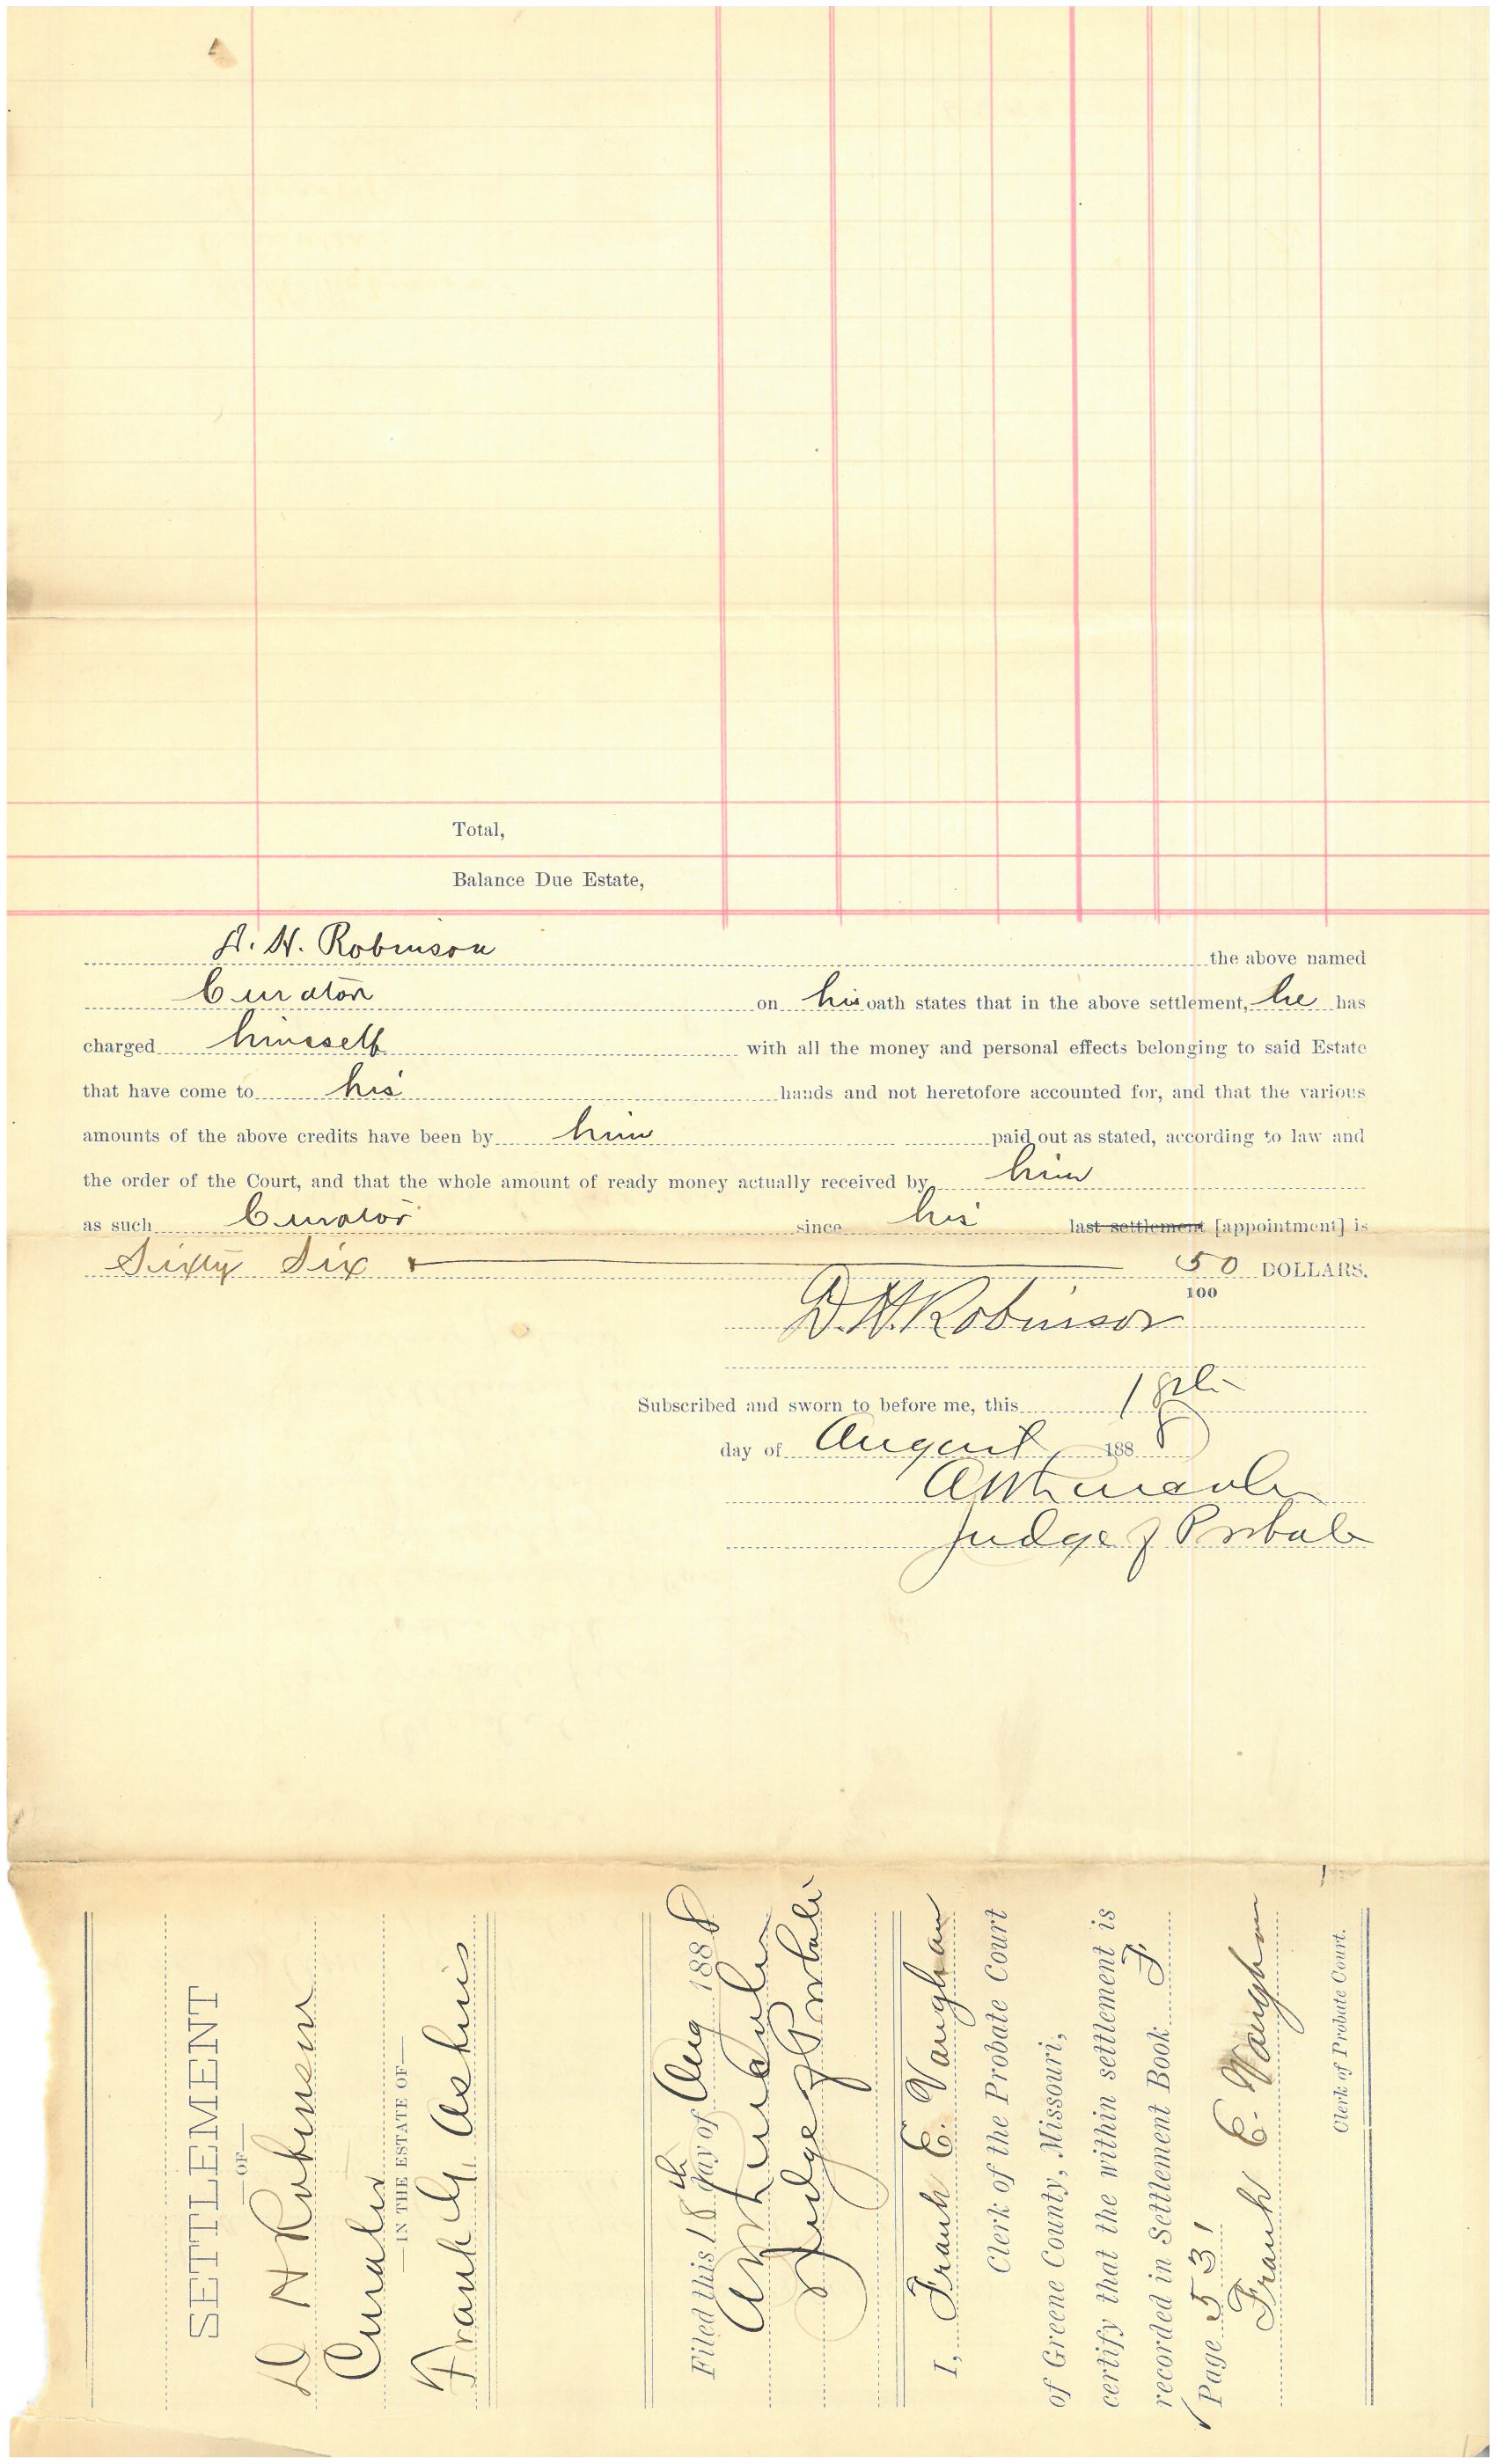 Total,
Balance Due Estate,
D. H. Robinson the above named
Curator on his oath states that in the above settlement, he has
charged himself with all the money and personal effects belonging to said Estate
that have come to his hands and not heretofore accounted for, and that the various
amounts of the above credits have been by him paid out as stated, according to law and
the order of the Court, and that the whole amount of ready money actually received by him
as such Curator since his last settlement [appointment] is
Sixty Six & 50 DOLLARS.
100
D. H. Robinson
Subscribed and sworn to before me, this 18th
day of August 1888
Judge of Probate
SETTLEMENT
—OF—
D H Robinson
Curator
—IN THE ESTATE OF—
Frank G.
Filed this 18th day of Aug 1888
Judge of Probate
I, Frank E. Vaughan
Clerk of the Probate Court
of Greene County, Missouri,
certify that the within settlement is
recorded in Settlement Book F
Page 531
Frank E. Vaughan
Clerk of Probate Court.